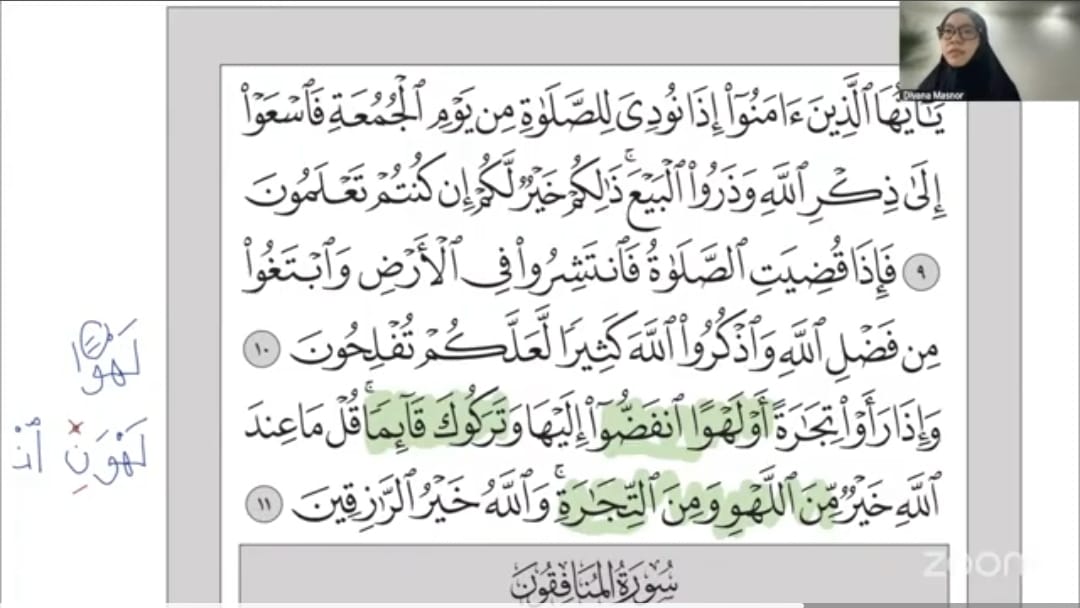 Diyana Masnor
يَـٰٓأَيُّهَا ٱلَّذِينَ ءَامَنُوٓا۟ إِذَا نُودِىَ لِلصَّلَوٰةِ مِن يَوْمِ ٱلْجُمُعَةِ فَٱسْعَوْا۟
إِلَىٰ ذِكْرِ ٱللَّهِ وَذَرُوا۟ ٱلْبَيْعَ ۚ ذَٰلِكُمْ خَيْرٌ لَّكُمْ إِن كُنتُمْ تَعْلَمُونَ
٩ فَإِذَا قُضِيَتِ ٱلصَّلَوٰةُ فَٱنتَشِرُوا۟ فِى ٱلْأَرْضِ وَٱبْتَغُوا۟
مِن فَضْلِ ٱللَّهِ وَٱذْكُرُوا۟ ٱللَّهَ كَثِيرًا لَّعَلَّكُمْ تُفْلِحُونَ ١٠
لَهْوًا
وَإِذَا رَأَوْا۟ تِجَـٰرَةً أَوْ لَهْوًا ٱنفَضُّوٓا۟ إِلَيْهَا وَتَرَكُوكَ قَآئِمًا ۚ قُلْ مَا عِندَ
لَهْوَنِ ٱنْ
ٱللَّهِ خَيْرٌ مِّنَ ٱللَّهْوِ وَمِنَ ٱلتِّجَـٰرَةِ ۚ وَٱللَّهُ خَيْرُ ٱلرَّٰزِقِينَ ١١
zoom
سُورَةُ المُنَافِقُونَ